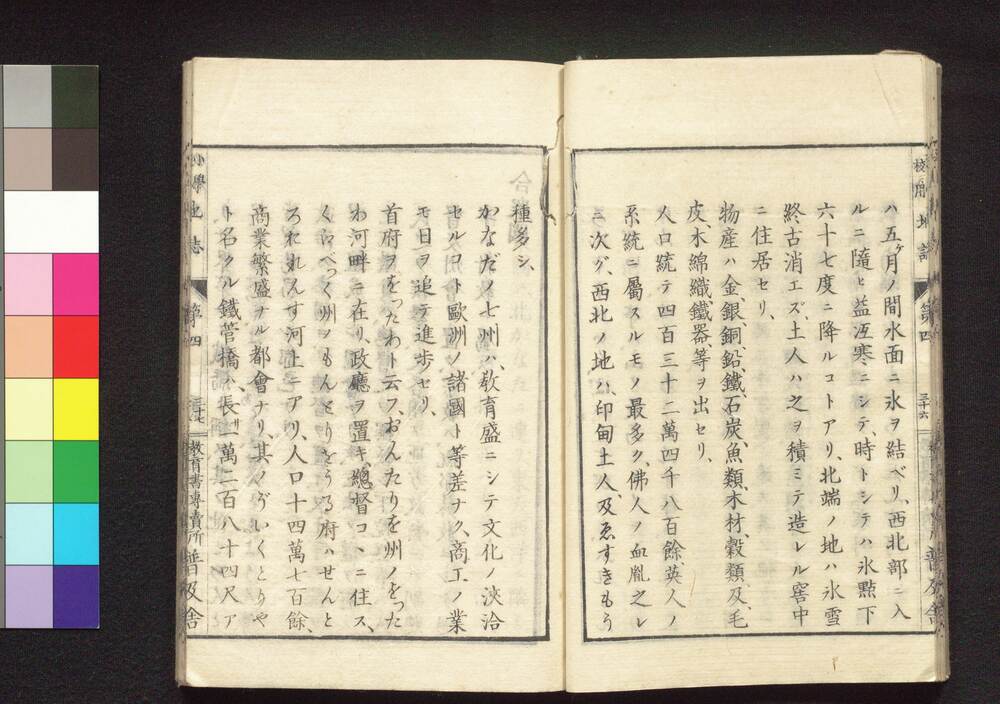 ハ五ヶ月ノ間水面ニ氷ヲ結ベリ、西北部ニ入
ルニ隨ヒ益冱寒ニシテ、時トシテハ氷點下
六十七度ニ降ルコトアリ、北端ノ地ハ氷雪
終古消エズ、土人ハ之ヲ積ミテ造レル窖中
ニ住居セリ、
物産ハ金、銀、銅、鉛、鐵、石炭、魚類、木材、穀類、及、毛
皮、木綿織、鐵器、等ヲ出セリ、
人口統テ四百三十二萬四千八百餘、英人ノ
系統ニ屬スルモノ最多ク、佛人ノ血胤之レ
ニ次グ、西北ノ地ハ、印甸土人、及、ゑすきもう
種多シ、
かなだノ七州ハ、敎育盛ニシテ文化ノ浹洽
セルコト歐洲ノ諸國ト等差ナク、商工ノ業
モ日ヲ追テ進歩セリ、
首府ヲをつたわト云フ、おんたりを州ノをつた
わ河畔ニ在リ、政廳ヲ置キ、總督コヽニ住ス、
くゑべっく州ヲもんとりをうる府ハせんと
ろれんす河上ニアリ、人口十四萬七百餘、
商業繁盛ナル都會ナリ、其ノゔいくとりや
ト名クル鐵管橋ハ、長サ一萬二百八十四尺ア
小學地誌
第四
三十七
敎育書專賣所 普及舍